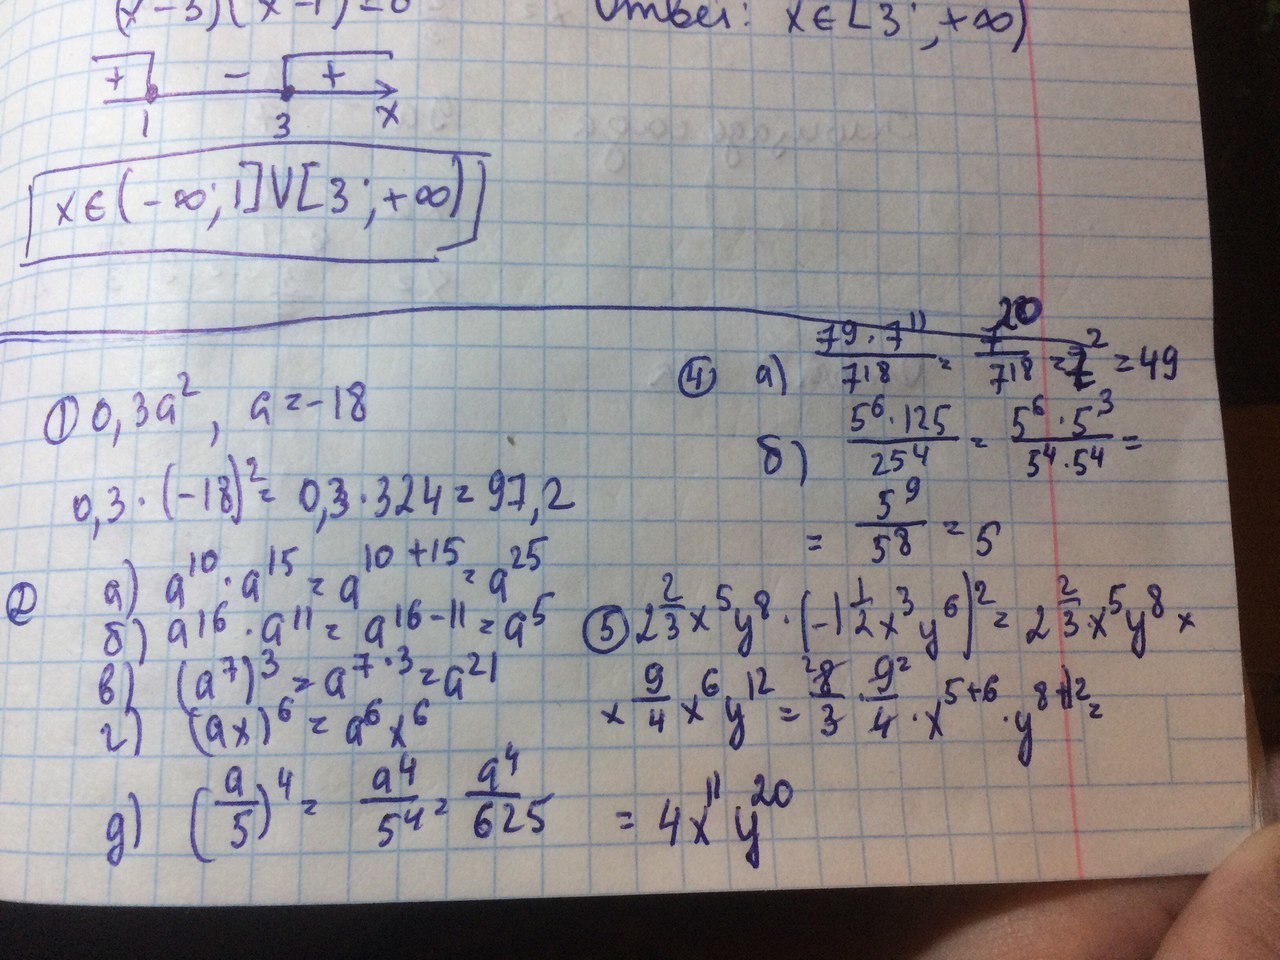 (x-3)(x-1)=0
Ответ: x∈[3;+∞)
+ - +
1 3 x
x∈(-∞;1]V[3;+∞)
① 0,3a², a=-18
0,3·(-18)²=0,3·324=97,2
② а) a¹⁰·a¹⁵=a¹⁰⁺¹⁵=a²⁵
б) a¹⁶·a¹¹=a¹⁶⁻¹¹=a⁵
в) (a⁷)³=a⁷·³=a²¹
г) (ax)⁶=a⁶x⁶
д) (a/5)⁴=a⁴/5⁴=a⁴/625
④ а) 7⁹·7¹¹/7¹⁸=7²⁰/7¹⁸=7²=49
б) 5⁶·125/25⁴=5⁶·5³/5⁴·5⁴=
=5⁹/5⁸=5
⑤ 2 2/3x⁵y⁸·(-1 1/2x³y⁶)²=2 2/3·x⁵y⁸×
×9/4x⁶y¹²=8/3·9/4·x⁵⁺⁶·y⁸⁺¹²=
=4x¹¹y²⁰